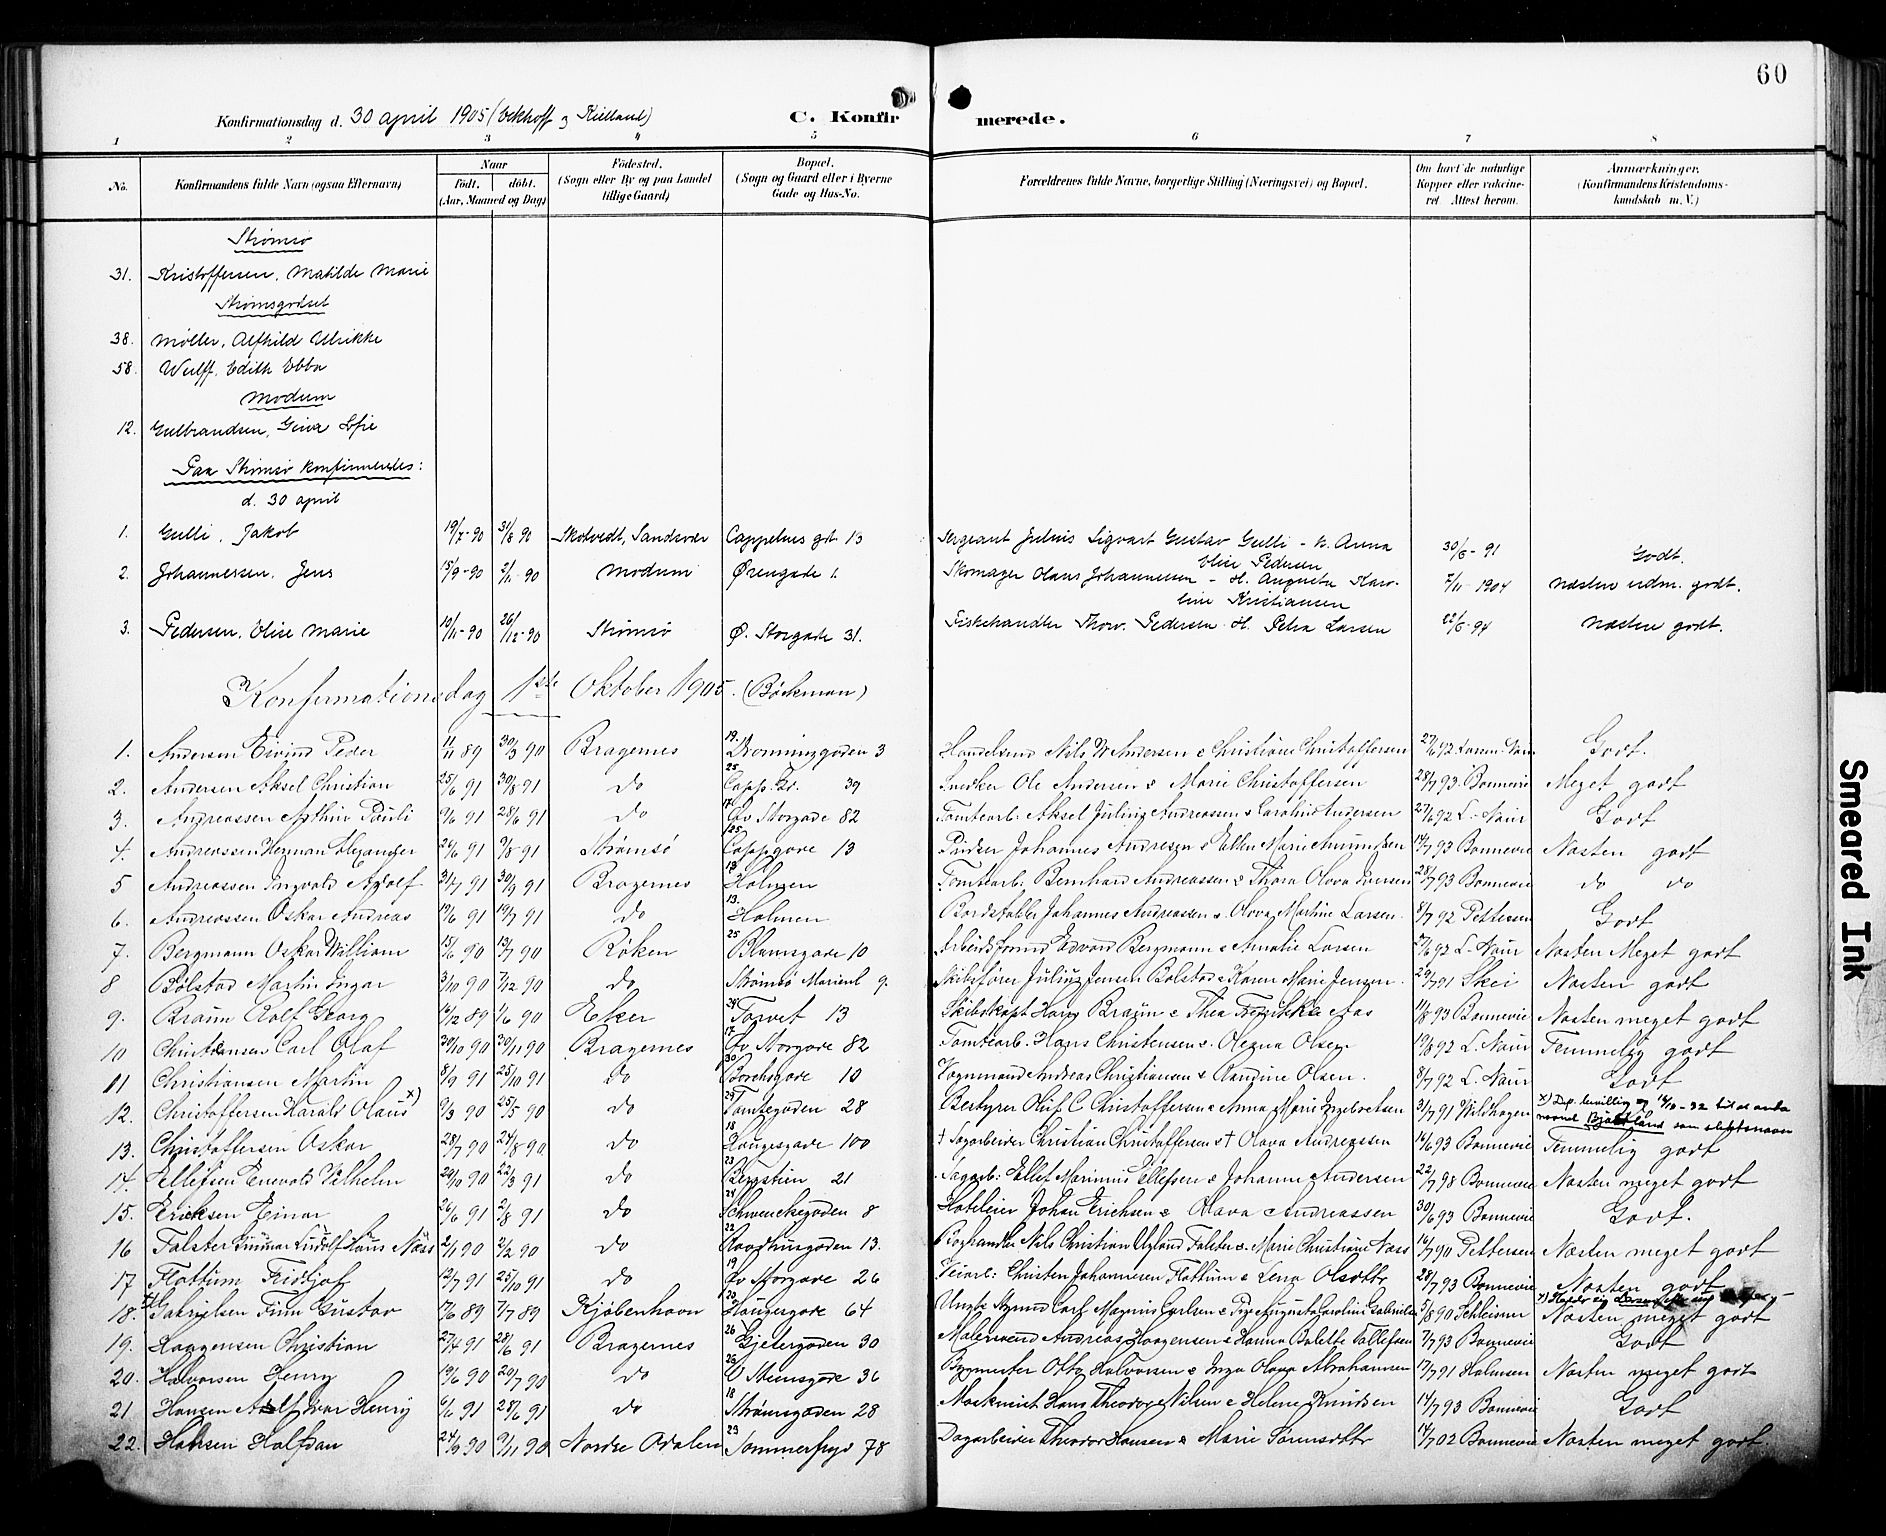 60
Konfirmationsdag d. 30 april 1905 (Eckhoff og Kielland) C. Konfirmerede.
1 2 3 4 5 6 7 8
No. Konfirmandens fulde Navn (ogsaa Efternavn) Naar født. døbt. (Aar, Maaned og Dag) Fødested. (Sogn eller By og paa Landet tillige Gaard) Bopæl. (Sogn og Gaard eller i Byerne Gade og Hus-No. Forældrenes fulde Navne, borgerlige Stilling (Næringsvei) og Bopæl. Om havt de naturlige Kopper eller vakcineret. Attest herom. Anmærkninger. (Konfirmandens Kristendomskundskab m. V.)
Strømsø
31. Kristoffersen, Matilde Marie
Strømsgodset
38. Møller, Alfhild Ullrikke
58. Wulff, Edith Ebba
Modum
12. Gulbrandsen, Gina Sofie
Paa Strømsø konfirmeredes:
d. 30 april
1. Gulli, Jakob 19/7-90 31/8 90 Skolvedt, Sandsvær Cappelens gd 13 Sergeant Julius Sigvart Gustav Gulli - H. Anna Elise Pedersen 30/6-91 Godt.
2. Johannessen, Jens 15/9-90 2/11-90 Modum Ørengade 1. Skomager Hans Johannessen - H. Augusta Karoline Kristiansen 2/11 1904 Næsten udm. godt.
3. Pedersen, Elise Marie 10/11-90 26/12-90 Strømsø Ø. Storgade 31. Fiskehandler Thorv. Pedersen H. Petra Larsen 22/6-94 Næsten godt.
Konfirmationsdag 1ste Oktober 1905. (Böckman)
1. Andersen Eivind Peder 11/11 89 30/3 90 Bragernes 19. Dronninggaden 3 Handelsmd Nils W Andersen & Christiane Christoffersen 27/6 92 Lorem. Naur Godt.
2. Andersen Aksel Christian 25/6 91 30/8 91 do 25 Capp. Gd. 39 Snedker Ole Andersen & Marie Christoffersen 28/7 93 Bonnevie Meget godt
3. Andreassen Arthur Pauli 9/6 91 28/6 91 do 17 Øv Storgade 82 Tomtearb. Aksel Julius Andreassen & Caroline Andersen 27/6 92 L. Naur Godt
4. Andreassen Herman Alexander 20/6 91 9/8 91 Strømsö 25 Cappgade 13 Pudser Johannes Andresen & Ellen Marie Amundsen 14/7 93 Bonnevie Næsten godt
5 Andreassen Ingvald Adolf 31/7 91 30/9 91 Bragernes 13 Holmen Tomtearb. Bernhard Andreassen & Thora Olava Iversen 28/7 93 Bonnevie do do
6. Andreassen Oskar Andreas 19/6 91 19/7 91 do 13. Holmen Bordstabler Johannes Andreassen & Olava Martine Larsen. 8/7 92 Pettersen Godt
7. Bergmann Oskar William 15/6 90 13/7 90 Røken 25 Blumsgade 10 Arbeidsformd Edvard Bergmann & Amalie Larsen 92 L. Naur Næsten Meget godt
8 Bolstad Martin Ingar 3/10 90 7/12 90 do Strömsö Marienl 9. Skibsfører Julius Jensen Bolstad & Karen Marie Jensen. 29/7 91 Skei Næsten godt
9. Braun Rolf Georg 16/12 89 1/6 90 Eker 24 Torvet 13 Skibskapt Hans Braun & Thea Fredrikke Aas 11/8 93 Bonnevie Næsten meget godt
10 Christensen Carl Olaf 20/10 90 30/11 90 Bragernes 17 Øv Storgade 82 Tomtearb. Hans Christensen & Olegna Olsen 19/8 92 L. Naur Temmelig godt
11 Christiansen Martin 8/9 91 25/10 91 do 30 Borchsgade 10 Vognmand Andreas Christiansen & Randine Olsen. 8/7 92 L. Naur Godt
12. Christoffersen Harald Olaus x) 9/3 90 25/5 90 do 29 Tomtegaden 28 Bestyrer Oluf C Christoffersen & Anna Marie Ingebretsen 31/7 91 Wildhagen x) Dep. bevillig og 14/10-32 til at anta navnet Bjørtland som slektsnavn
13. Christoffersen Oskar 28/7 90 24/8 90 do 18 Haugesgade 100 † Sagarbeider Christian Christoffersen & † Olava Andreassen 14/6 93 Bonnevie Temmelig godt
14. Ellefsen Enevold Vilhelm 29/10 90 22/3 91 do 23 Bergstien 21 Saggarb. Ellef Marinius Ellefsen & Johanne Andersen 22/7 98 Bonnevie Næsten meget godt
15. Ericksen Einar 26/6 91 2/8 91 do 24 Schwenckegaden 8 Hoteleier Johan Erichsen & Olava Andreassen 30/6 93 Bonnevie Godt.
16 Falster Gunnar Ludolf Haus Næss 2/1 90 2/2 90 do 22 Raadhusgaden 13. Boghandler Nils Christian Uglund Falster & Marie Christiane Næss 16/7 90 Pettersen Næsten meget godt
17 Flattum Fridtjof 12/7 91 25/10 91 do 19 Øv Storgade 26 Veiarb. Christen Johannesen Flattum & Lena Olsdttr 28/7 93 Bonnevie Næsten godt
18. x) Gabrielsen Finn Gustav 17/6 89 7/7 89 Kjøbenhavn 20 Haugergade 64 Ungk Mgund Carl Magnus Carlsen & Pige Augusta Caroline Gabrielsen 5/8 90 Schleisner Næsten meget godt
19. Haagensen Christian 27/4 91 28/6 91 Bragernes 26 Gjetergaden 30 Malersvend Andreas Haagensen & Hanna Bolette Tollefsen 7/7 93 Bonnevie Godt
20. Halvorsen Henry 19/6 90 20/7 90 do 26 O Steensgade 36 Bygmester Otto Halvorsen & Inga Olava Abrahamsen 17/7 91 Halmsen Næsten meget godt
21 Hansen Adolf Ivar Henry 6/6 91 28/6 91 do 18 Strömsgaden 28 Maskinist Hans Theodor Nilsen & Helene Knudsen 14/7 93 Bonnevie Godt
22. Hansen Halfdan 24/9 90 9/11 90 Nordre Odalen 23 Sommerfryd 78 Dagarbeider Theodor Hansen & Marie Sørensdttr 14/7 02 Bonnevie Næsten meget godt.
Smeared Ink